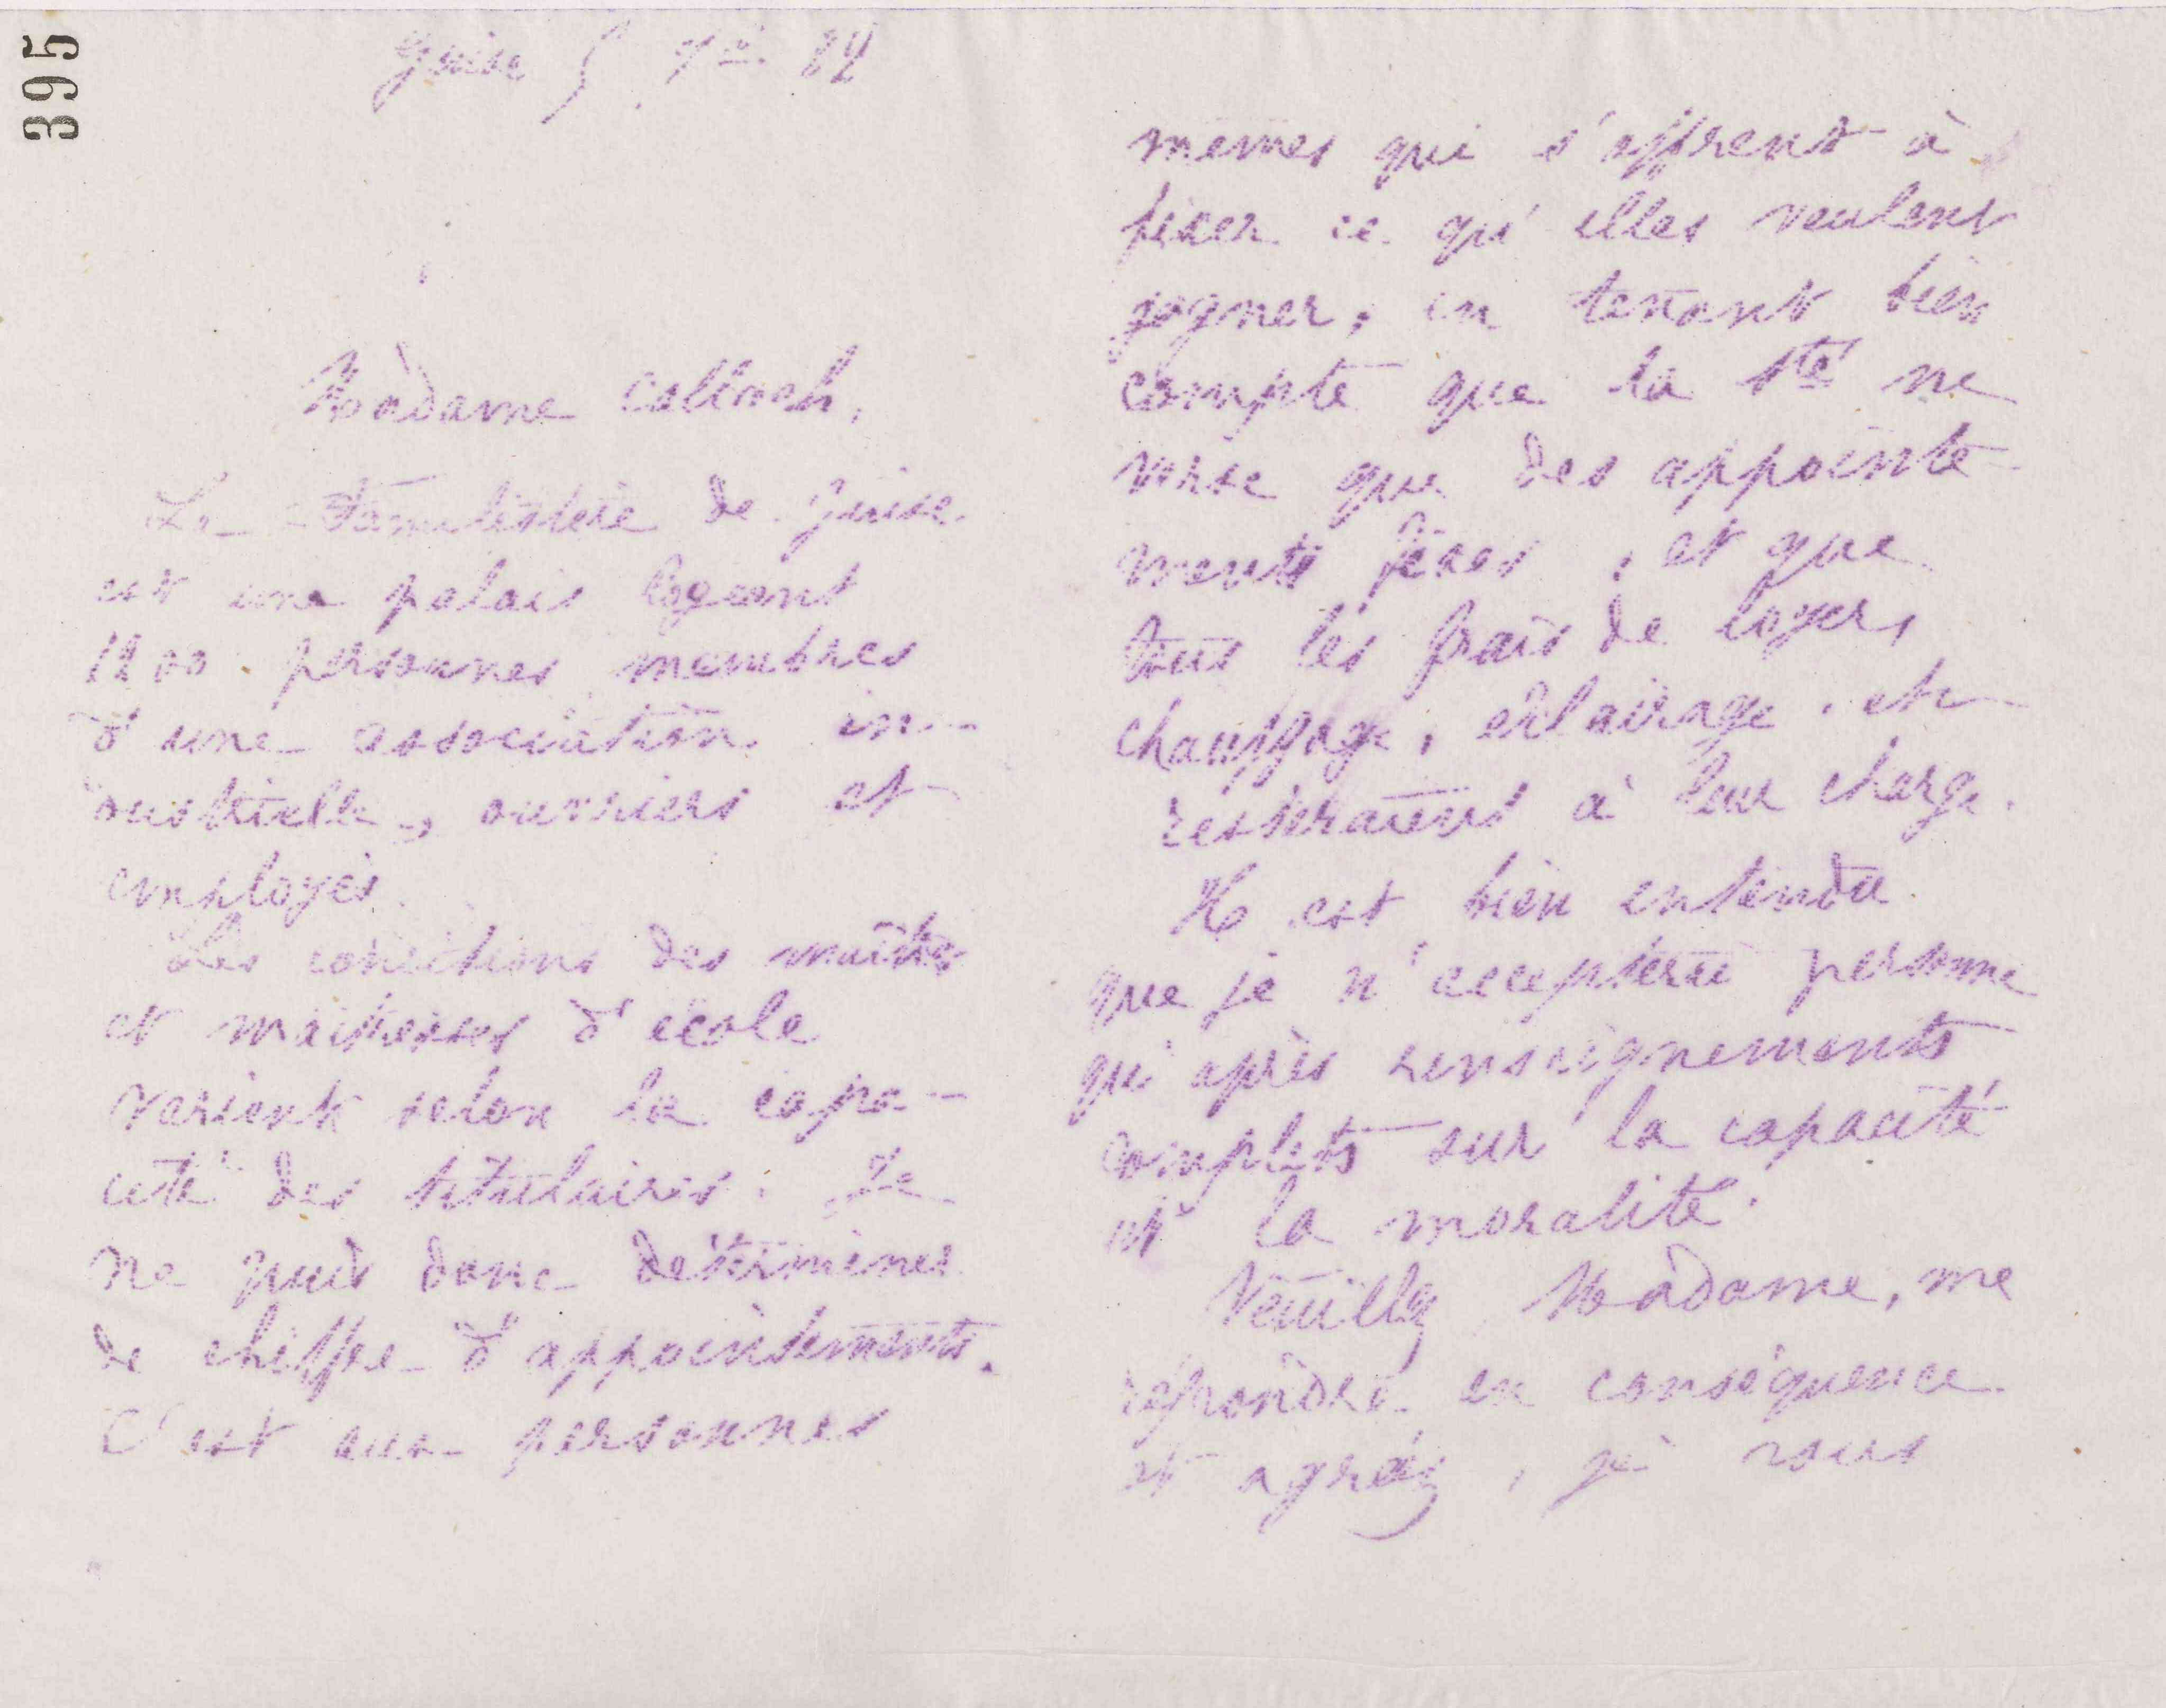 395
Guise 5 7bre 82
Madame Colloch,
Le Familistère de Guise
est un palais logeant
1200 personnes membres
d'une association in-
dustrielle, ouvriers et
employés.
Les conditions des maîtres
et maîtresses d'école
varient selon la capa-
cité des titulaires. Je
ne puis donc déterminer
de chiffre d'appointements.
C'est aux personnes
mêmes qui s'offrent à
fixer ce qu'elles veulent
gagner, en tenant bien
compte que la Sté ne
verse que des appointe-
ments fixes, et que
tous les frais de loyers,
chauffage, éclairage, etc
resteraient à leur charge.
Il est bien entendu
que je n'accepterai personne
qu'après renseignements
complets sur la capacité
et la moralité.
Veuillez Madame, me
répondre en conséquence
et agréez, je vous